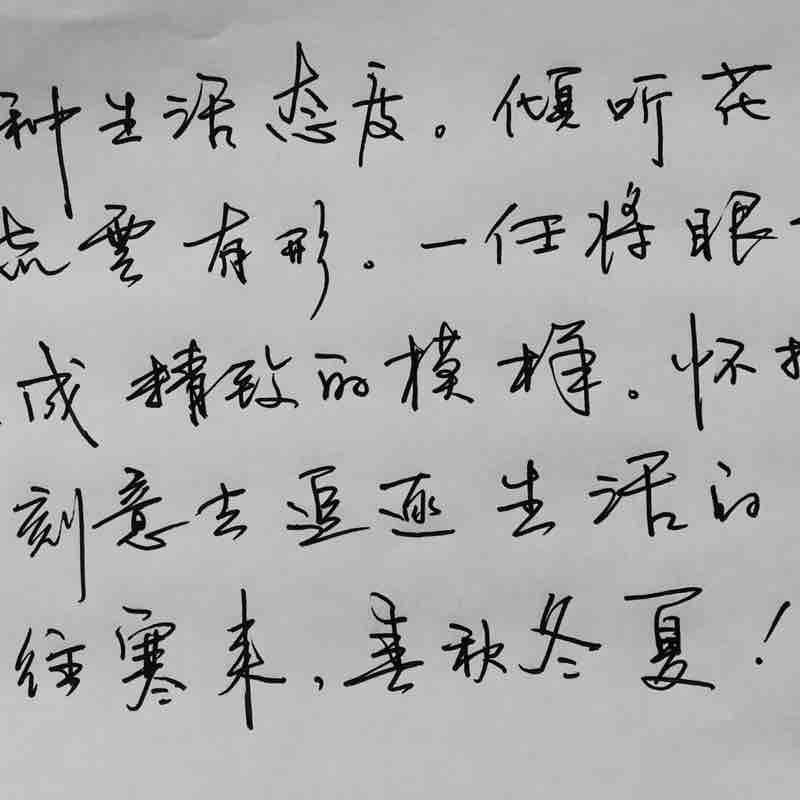 种生活态度。倾听花
流云有形。一任将眼
成精致的模样。怀
刻意去追逐生活的
往寒来,春秋冬夏!